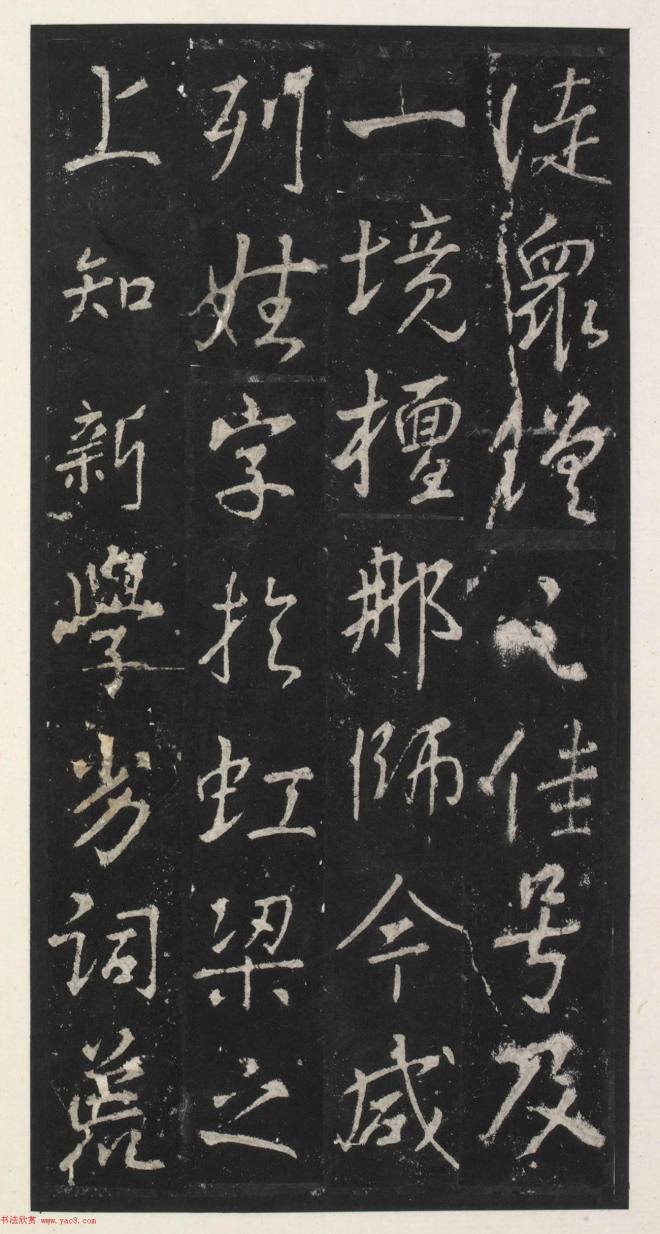 徒眾之佳号及
一境檀那師今咸
列姓字於虹梁之
上知新學劣詞荒
书法欣赏 www.yac8.com